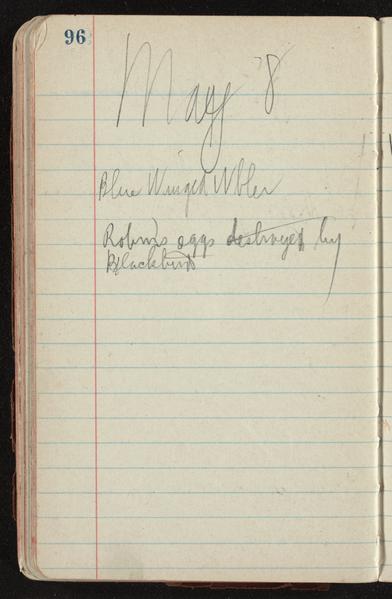 96
May 8
Blue Winged Wbler
Robin's eggs destroyed by
Blackbirds